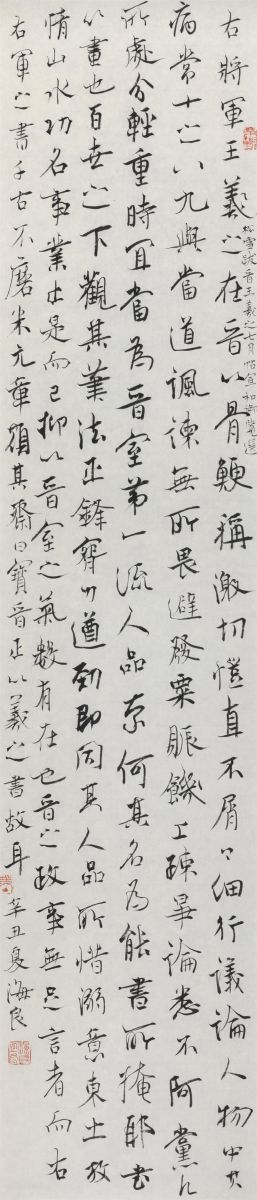 右將軍王羲之在晉以骨鯁稱激切愷直不屑々細行議論人物中其
病常十之八九與當道諷諫無所畏避發粟賑饑上疏畢論悉不阿黨凡
所處分輕重時宜當為晉室第一流人品奈何其名為能書所掩耶書
心畫也百世之下觀其筆法正鋒腕力遒勁即同其人品所惜溺意東土放
情山水功名事業止是而已抑以晉室之氣數有在也晉之政事無足言者而右
右軍之書千古不磨米元章額其齋曰寶晉正以羲之書故耳
辛丑夏海良
松雪跋晉王羲之七月帖宣和